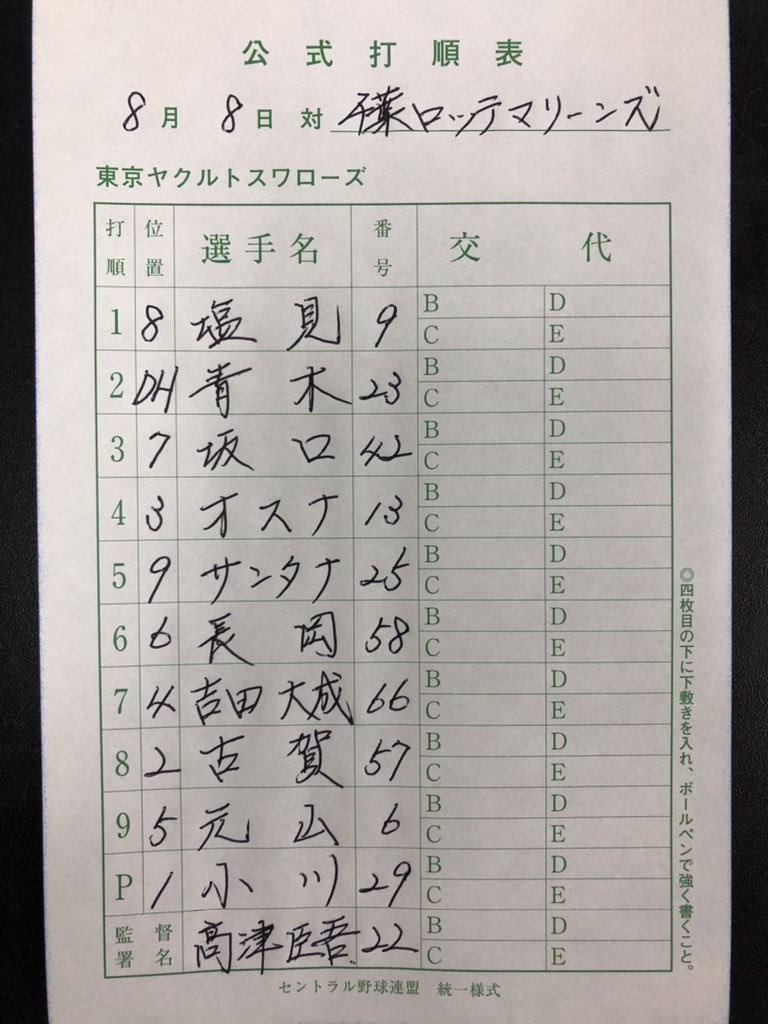 公式打順表
8月 8日 対 千葉ロッテマリーンズ
東京ヤクルトスワローズ
打順 位置 選手名 番号 交代
1 8 塩見 9 B D C E
2 DH 青木 23 B D C E
3 7 坂口 42 B D C E
4 3 オスナ 13 B D C E
5 9 サンタナ 25 B D C E
6 6 長岡 58 B D C E
7 4 吉田大成 66 B D C E
8 2 古賀 57 B D C E
9 5 元山 6 B D C E
P 1 小川 29 B D C E
監督署名 高津臣吾 22 B D C E
◎四枚目の下に下敷きを入れ、ボールペンで強く書くこと。
セントラル野球連盟 統一様式